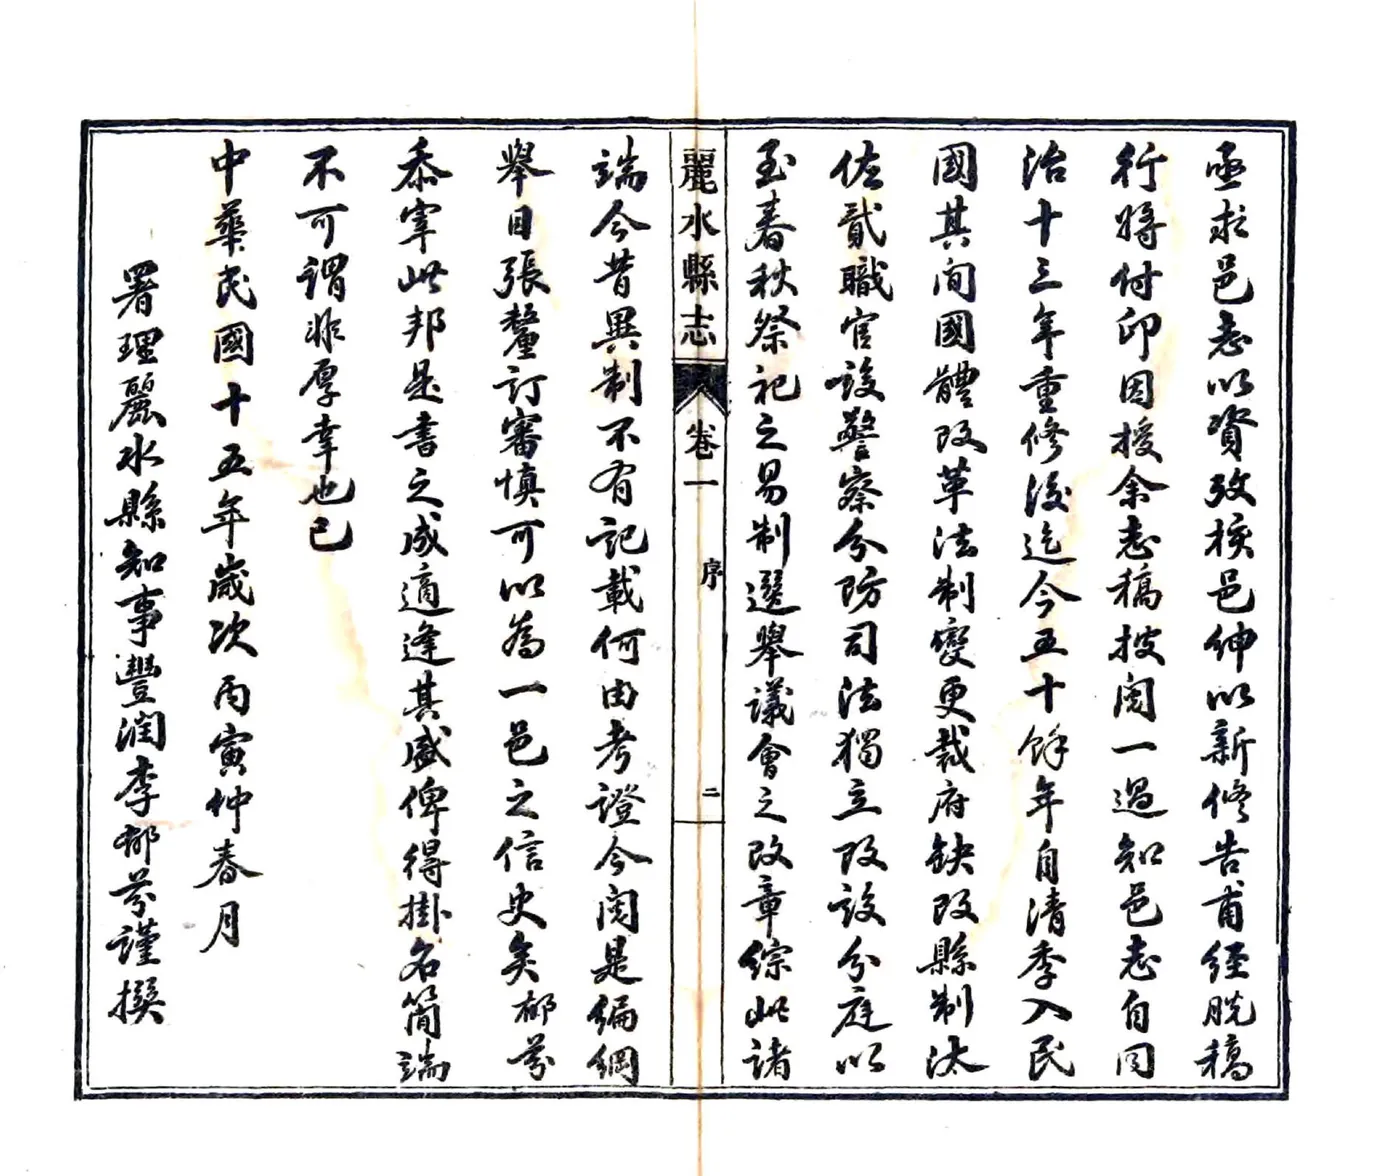 亟求邑志以資攷核邑紳以新修告甫經脫稿
行將付印因授余志稿披閱一過知邑志自同
治十三年重修後迄今五十餘年自清季入民
國其间國體改革法制變更裁府缺改縣制汰
佐貳職官設警察分防司法獨立改設分庭以
至春秋祭祀之易制選舉議會之改章綜此諸
麗水縣志
卷一
序
二
端今昔異制不有記載何由考證今閱是編綱
舉目張釐訂審慎可以為一邑之信史矣郁芬
忝宰此邦是書之成適逢其盛俾得掛名簡端
不可謂非厚幸也已
中華民國十五年歲次丙寅仲春月
署理麗水縣知事豐潤李郁芬謹撰